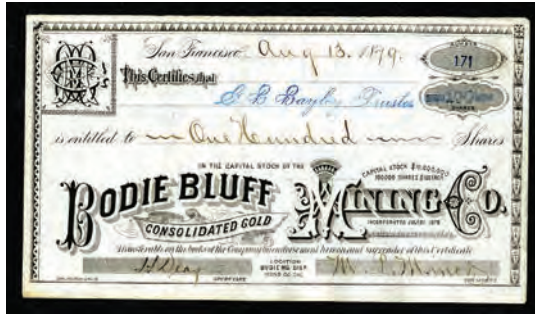 San Francisco Aug 13. 1879.
NUMBER
171
This Certifies that
G B Bayley Trustee
100
SHARES
is entitled to One Hundred Shares
IN THE CAPITAL STOCK OF THE
CAPITAL STOCK $10,000,000
100,000 SHARES
BODIE BLUFF
CONSOLIDATED GOLD
MINING CO.
INCORPORATED
Transferable on the books of the Company by endorsement hereon and surrender of this Certificate
LOCATION
BODIE MG DIST
MONO CO. CAL.
SECRETARY
PRESIDENT